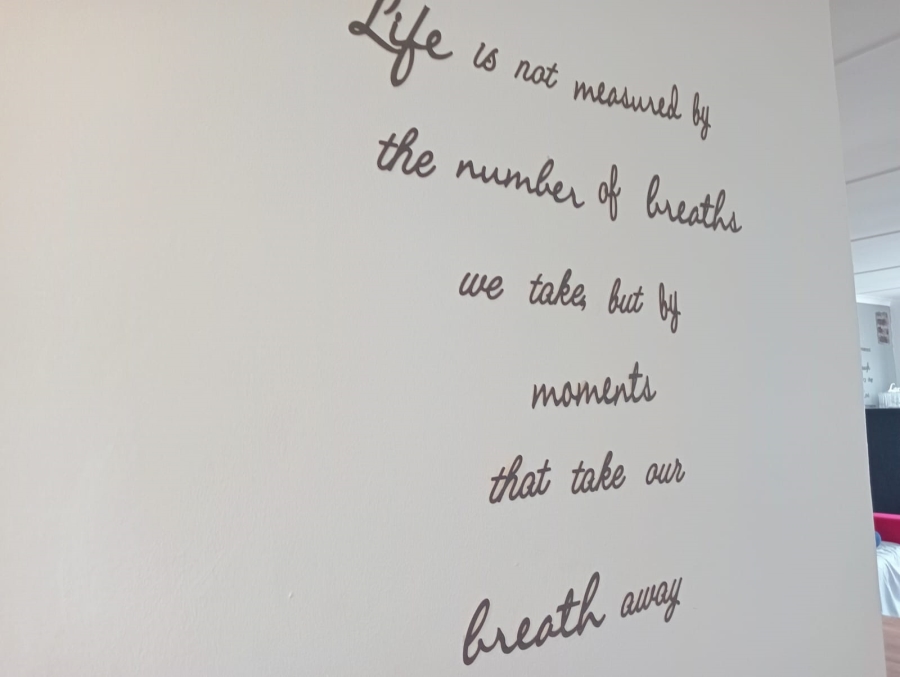 Life is not measured by
the number of breaths
we take, but by
moments
that take our
breath away